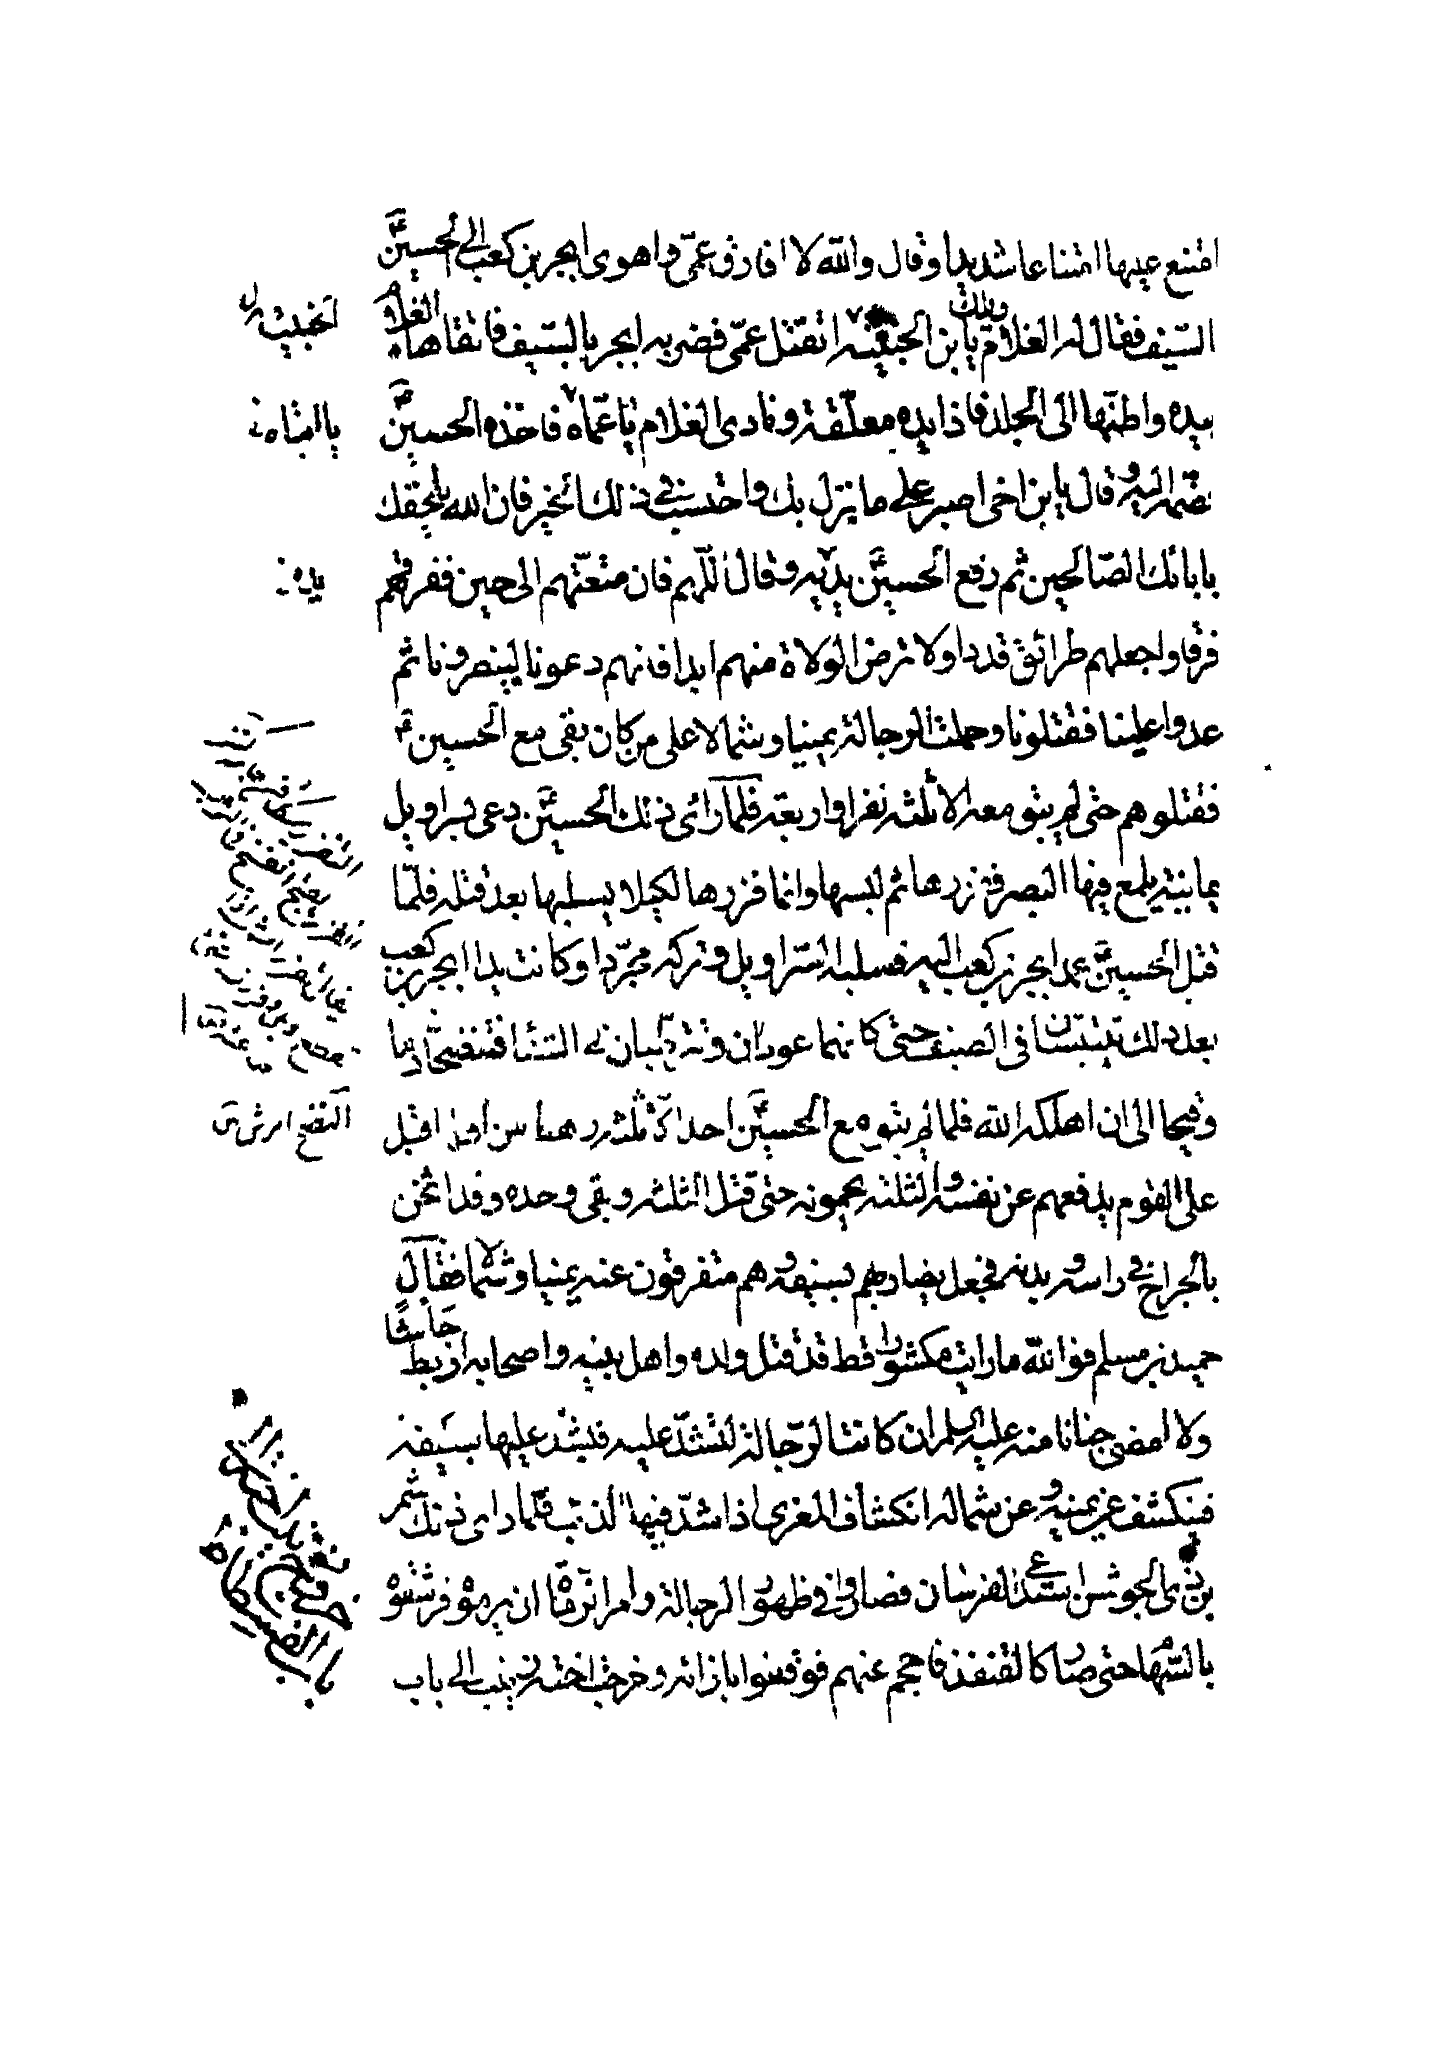 امتنع عليها امتناعا شديدا وقال والله لا افارق عمّى واهوى ابجر بن كعب الى الحسينؑ
السّيف فقال له الغلام ويلك يا بن الخبيثه اتقتل عمّى فضربه ابجر بالسّيف فاتقاها الغلام
بيده واطنّها الى الجلد فاذا يده معلّقة ونادى الغلام يا عمّاه فاخذه الحسينؑ
فضمه اليه وقال يا بن اخى اصبر على ما نزل بك واحتسب فى ذلك الخير فان الله يلحقك
بابائك الصّالحين ثم رفع الحسينؑ يديه وقال اللّهم فان متعتهم الى حين ففرقهم
فرقا واجعلهم طرائق قددا ولا ترض الولاة منهم ابدا فانهم دعونا لينصرونا ثم
عدوا علينا فقتلونا وحملت الرجالة يمينا وشمالا على من كان بقى مع الحسينؑ
فقتلوهم حتى لم يبق معه الا ثلثه نفر او اربعة فلما رائ ذلك الحسينؑ دعى بسراويل
يمانية يلمع فيها البصر ففزرها ثم لبسها وانما فزرها لكيلا يسلبها بعد قتله فلمّا
قتل الحسينؑ عمد ابجر بن كعب اليه فسلبه السّراويل وتركه مجرّدا وكانت يدا ابجر بن كعب
بعد ذلك تيبسان فى الصيف حتى كانهما عودان وترطبان فى الشتاء فتنضحان دما
وقيحا الى ان اهلكه الله فلما لم يبق مع الحسينؑ احد الّا ثلثة رهط من اهله اقبل
على القوم يدفعهم عن نفسه والثلثه يحمونه حتى قتل الثلثه وبقى وحده وقد اثخن
بالجراح فى راسه وبدنه فجعل يضاربهم بسيفه وهم متفرقون عنه يمينا وشمالا فقال
حميد بن مسلم فوالله ما رايت مكثورا قط قد قتل ولده واهل بيته واصحابه اربط جأشا
ولا امضى جنانا منه عليه السلم ان كانت الرّجالة لتشدّ عليه فيشدّ عليها بسيفه
فينكشف عن يمينه وعن شماله انكشاف المعزى اذا شدّ فيها الذئب فلما راى ذلك شمر
بن ذى الجوشن استدعى الفرسان فصاروا فى ظهور الرجالة وامر الرّماة ان يرموه فرشقوه
بالسّهام حتى صار كالقنفذ فاحجم عنهم فوقفوا بازائه وخرجت اخته زينب الى باب